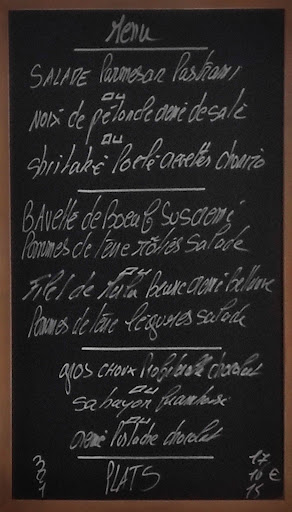 Menu
SALADE Parmesan Pastrami
ou
NOIX de pétoncle crème de salé
ou
Shiitaké Poêlé crevettes chorizo
BAvette de Boeuf sus crème
Pommes de terre rôties Salade
ou
Filet de Beurre
Pommes de terre légumes salade
gros choux Profiterole chocolat
ou
sabayon framboise
ou
crème Pistache chocolat
3 17
2 PLATS 10 €
1 15